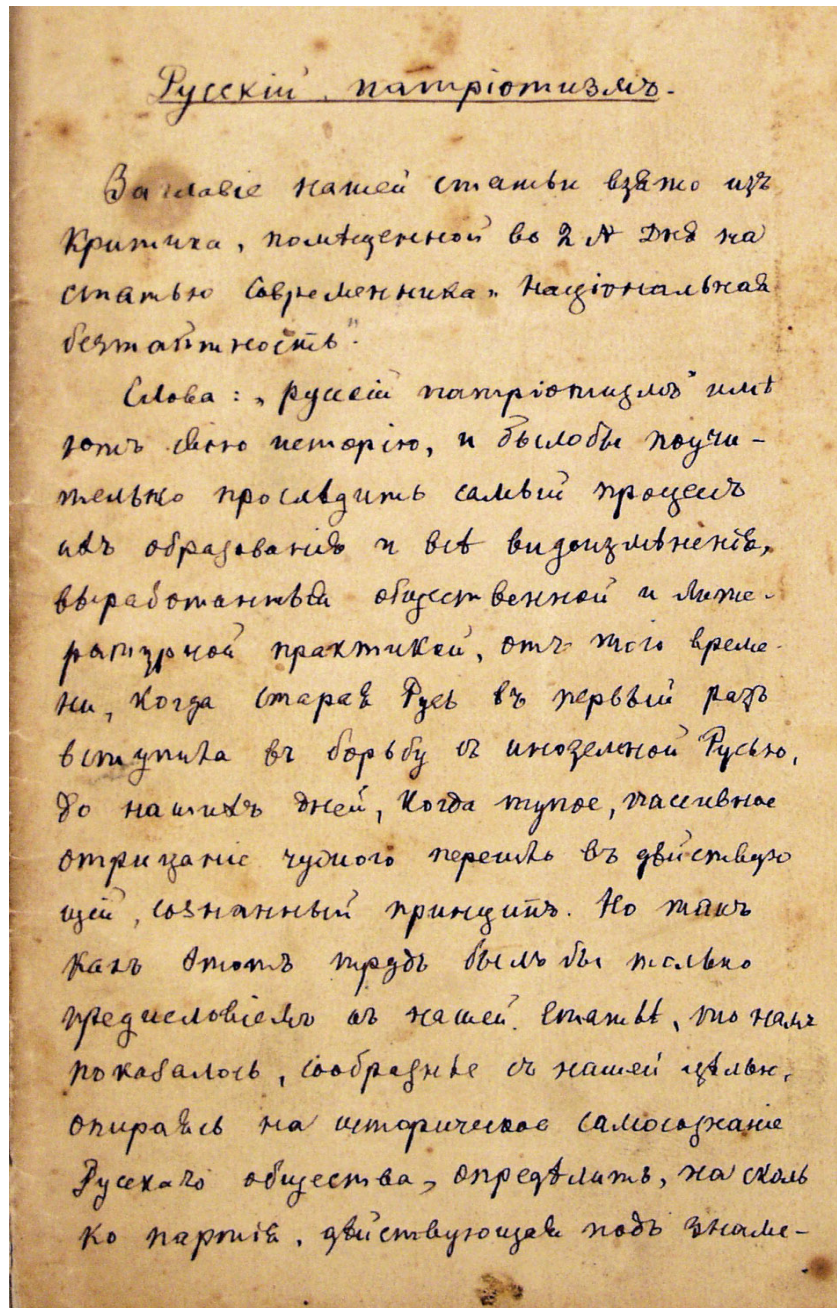 Русскій патріотизмъ.
Заглавіе нашей статьи взято изъ
критики, помѣщенной во 2 № Дня на
статью Современника „Національная
безтактность".
Слова: „русскій патріотизмъ" имѣ
ютъ свою исторію, и было бы поучи-
тельно прослѣдить самый процессъ
ихъ образованія и всѣ видоизмѣненія,
выработанныя общественной и лите-
ратурной практикой, отъ того време-
ни, когда старая Русь въ первый разъ
вступила въ борьбу съ иноземной Русью,
до нашихъ дней, когда тупое, пассивное
отрицаніе чужого перешло въ дѣйствую
щій, сознанный принципъ. Но такъ
какъ этотъ трудъ былъ бы только
предисловіемъ къ нашей статьѣ, то намъ
показалось, сообразнѣе съ нашей цѣлью,
опираясь на историческое самосознаніе
Русскаго общества, опредѣлить, на сколь
ко партія, дѣйствующая подъ знаме-